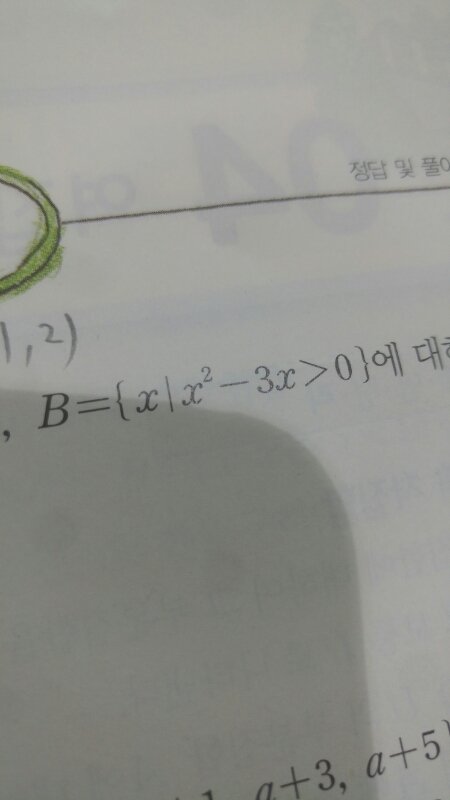 정답 및 풀이
1, 2)
, B={x|x²-3x>0}에 대하
a+3, a+5